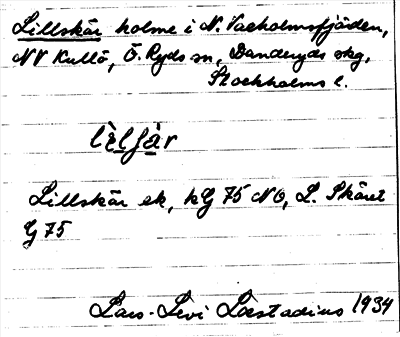 Lillskär holme i N. Vaxholmsfjärden,
NV Kullö, Ö. Ryds sn, Danderyds skg,
Stockholms l.
lìlʃàr
Lillskär ek, kG 75 NO, L. Skäret
G 75
Lars-Levi Læstadius 1934